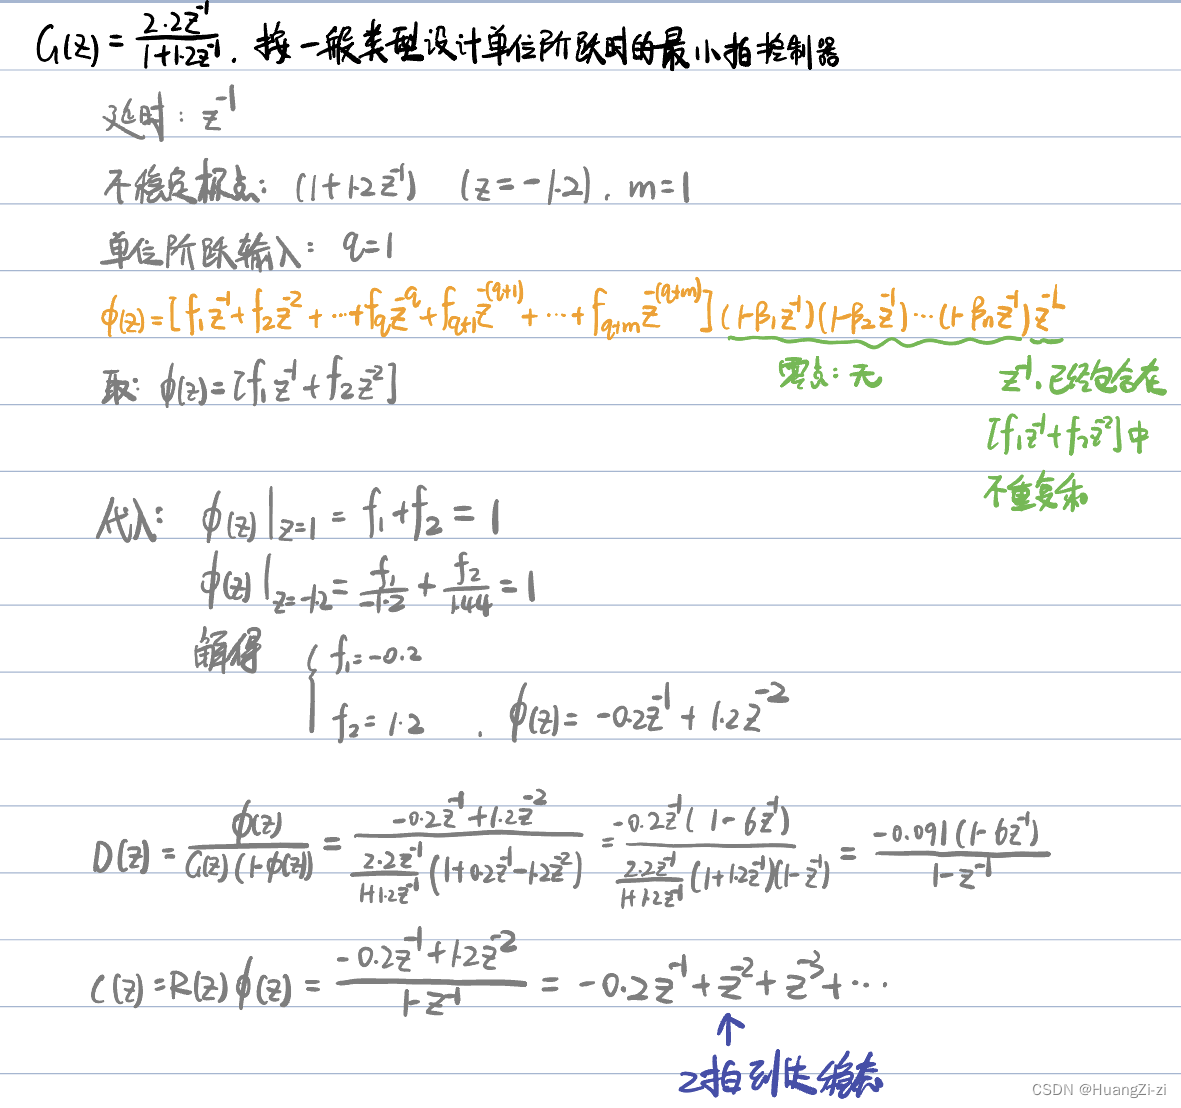 G(z) = 2.2z⁻¹ / (1+1.2z⁻¹) . 按一般类型设计单位阶跃时的最小拍控制器
延时: z⁻¹
不稳定极点: (1+1.2z⁻¹) (z=-1.2). m=1
单位阶跃输入: q=1
ϕ(z)=[f₁z⁻¹+f₂z⁻²+…+f_q z^-q+f_{q+1}z^-(q+1)+…+f_{q+m}z^-(q+m)](1-β₁z⁻¹)(1-β₂z⁻¹)…(1-βₙz⁻¹)z^-L
零点: 无
z⁻¹. 已经包含在
[f₁z⁻¹+f₂z⁻²]中
不重复乘
取: ϕ(z)=[f₁z⁻¹+f₂z⁻²]
代入: ϕ(z)|z=1 = f₁+f₂ = 1
ϕ(z)|z=-1.2 = f₁/-1.2 + f₂/1.44 = 1
解得 { f₁=-0.2
f₂=1.2 . ϕ(z)= -0.2z⁻¹+1.2z⁻²
D(z) = ϕ(z) / (G(z)(1-ϕ(z))) = (-0.2z⁻¹+1.2z⁻²) / (2.2z⁻¹/(1+1.2z⁻¹) (1+0.2z⁻¹-1.2z⁻²)) = -0.2z⁻¹(1-6z⁻¹) / (2.2z⁻¹/(1+1.2z⁻¹) (1+1.2z⁻¹)(1-z⁻¹)) = -0.091(1-6z⁻¹) / (1-z⁻¹)
C(z)=R(z)ϕ(z) = (-0.2z⁻¹+1.2z⁻²) / (1-z⁻¹) = -0.2z⁻¹+z⁻²+z⁻³+…
↑
2拍到达稳态
CSDN @HuangZi-zi